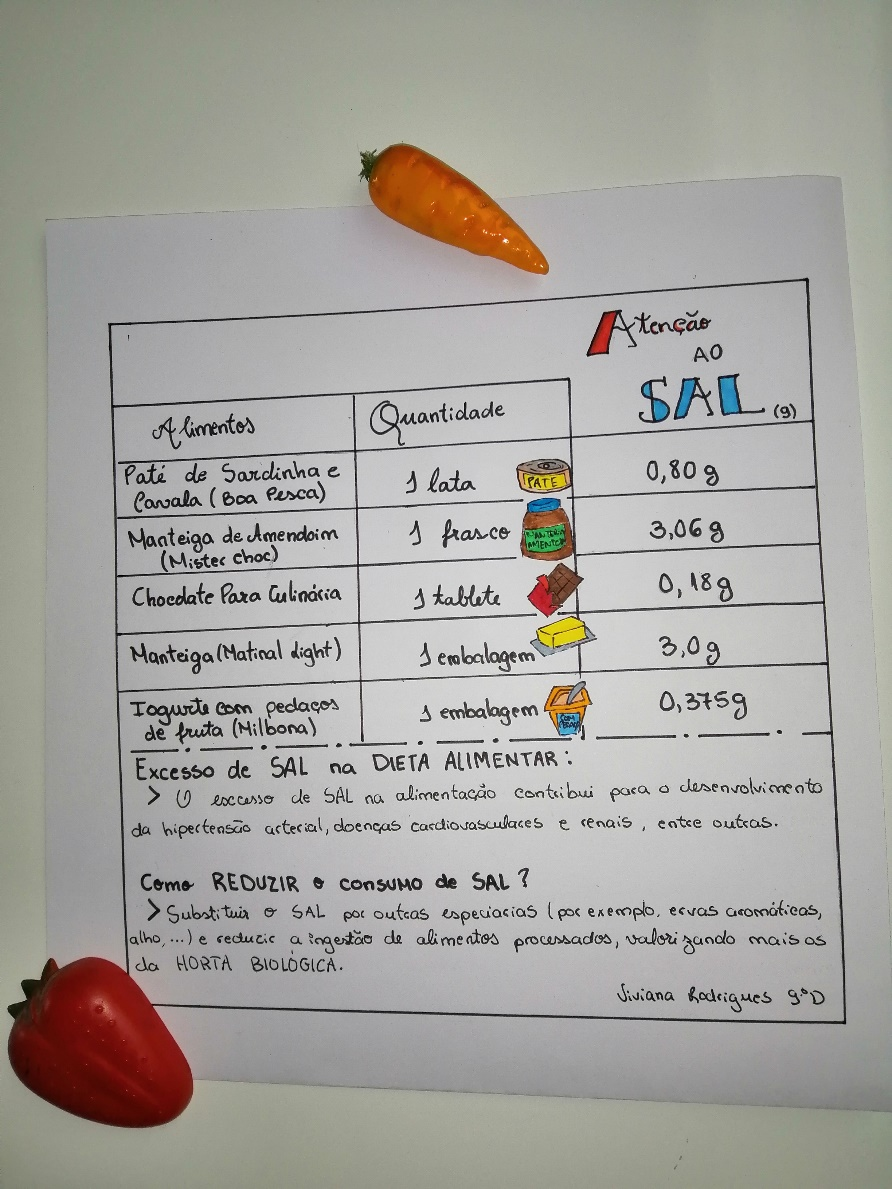 Atenção
AO
SAL (g)
Alimentos
Quantidade
Paté de Sardinha e
Cavala (Boa Pesca)
1 lata
PATE
0,80g
Manteiga de Amendoim
(Mister choc)
1 frasco
3,06g
Chocolate Para Culinária
1 tablete
0,18g
Manteiga (Matinal Light)
1 embalagem
3,0g
Iogurte com pedaços
de fruta (Milbona)
1 embalagem
0,375g
Excesso de SAL na DIETA ALIMENTAR:
> O excesso de SAL na alimentação contribui para o desenvolvimento
da hipertensão arterial, doenças cardiovasculares e renais, entre outras.
Como REDUZIR o consumo de SAL?
> Substituir o SAL por outras especiarias (por exemplo, ervas aromáticas,
alho,...) e reduzir a ingestão de alimentos processados, valorizando mais os
da HORTA BIOLÓGICA.
Viviana Rodrigues 9ºD